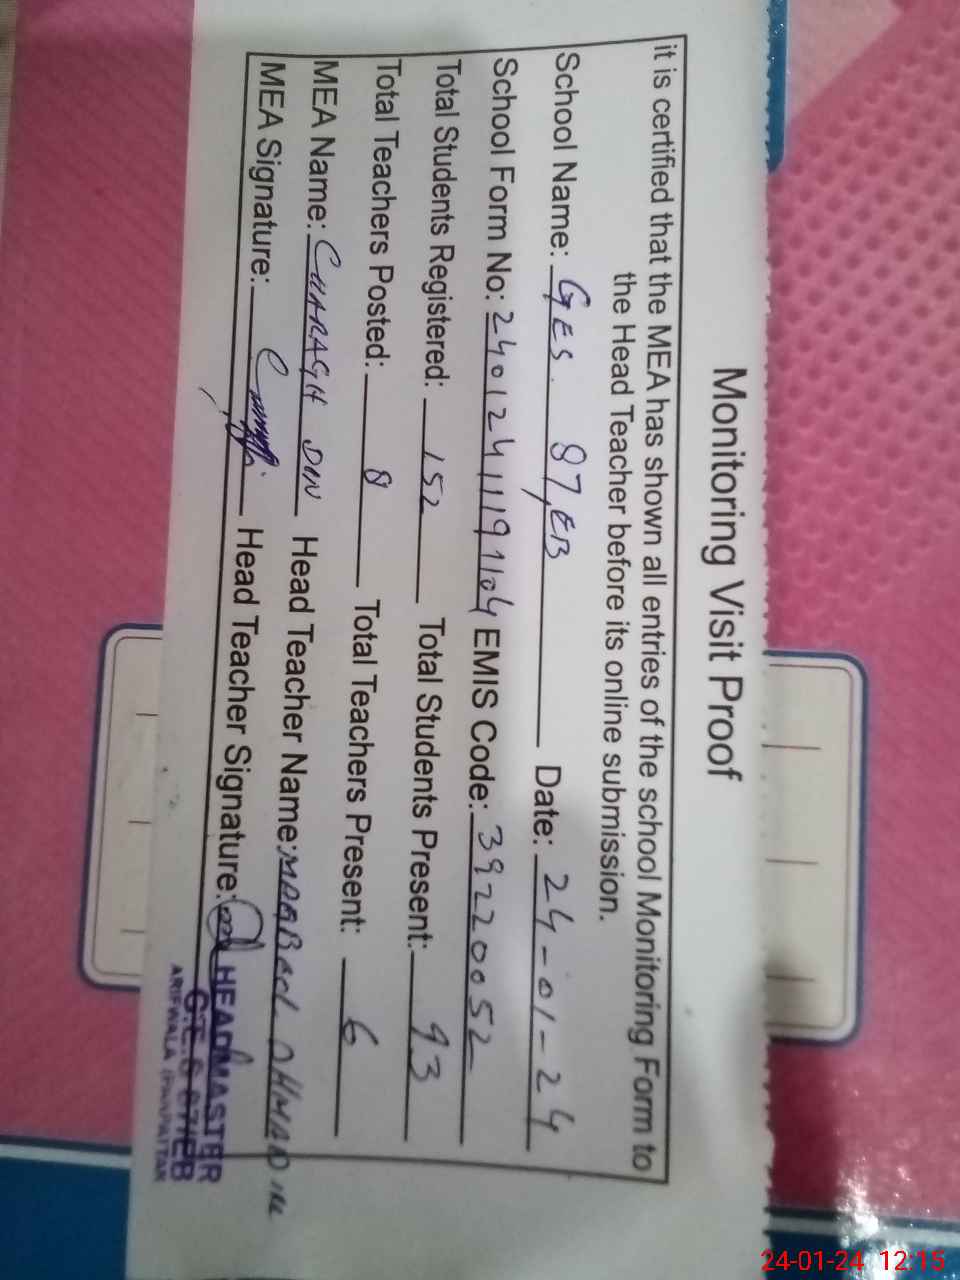 Monitoring Visit Proof
it is certified that the MEA has shown all entries of the school Monitoring Form to
the Head Teacher before its online submission.
School Name: GES 87/EB Date: 24-01-24
School Form No: 24012411191104 EMIS Code: 39220052
Total Students Registered: 152 Total Students Present: 93
Total Teachers Posted: 8 Total Teachers Present: 6
MEA Name: CHARAGH DIN Head Teacher Name: MAQBOOL AHMAD
MEA Signature: Head Teacher Signature:
HEADMASTER
G.E.S 87/EB
ARIFWALA (PAKPATTAN
24-01-24 12:15